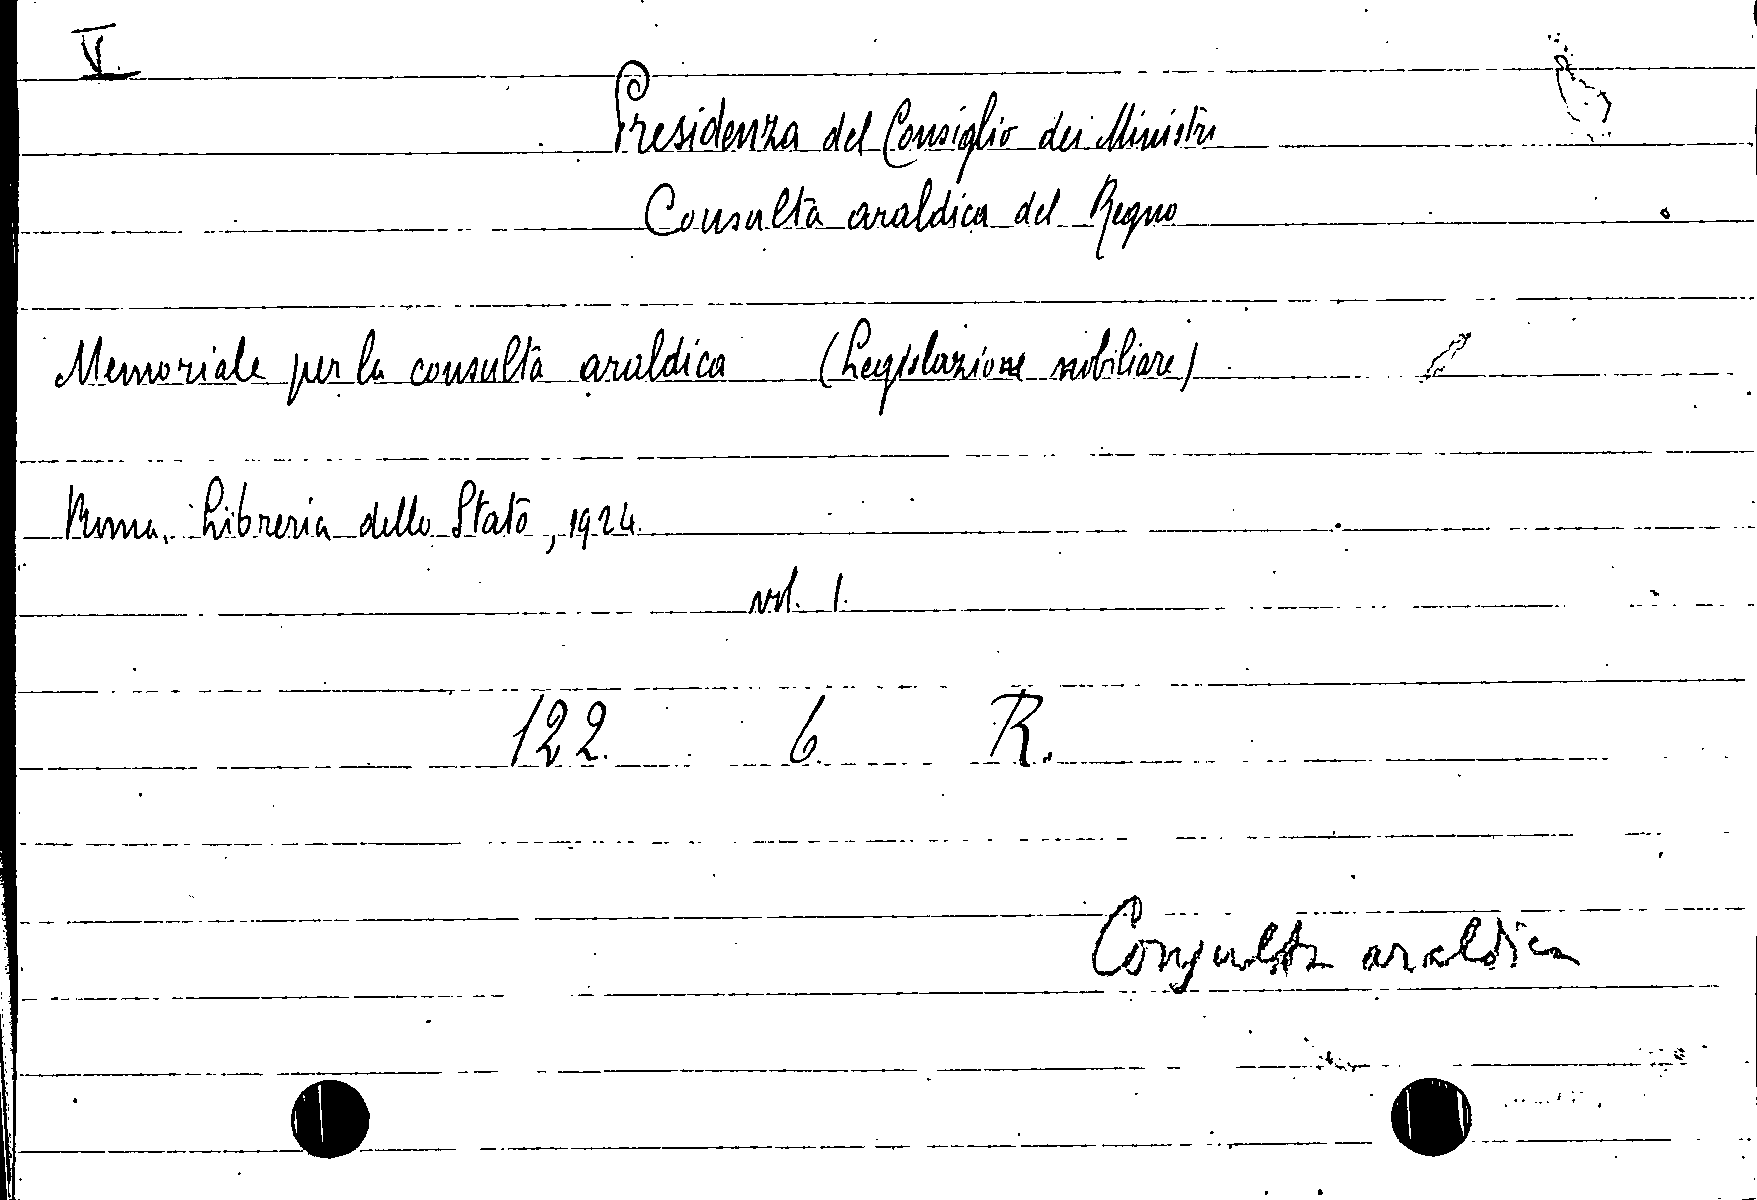 V.
Presidenza del Consiglio dei Ministri
Consulta araldica del Regno
Memoriale per la consulta araldica (Legislazione nobiliare)
Roma. Libreria dello Stato, 1924.
vol. 1.
122. 6. R.
Consulta araldica